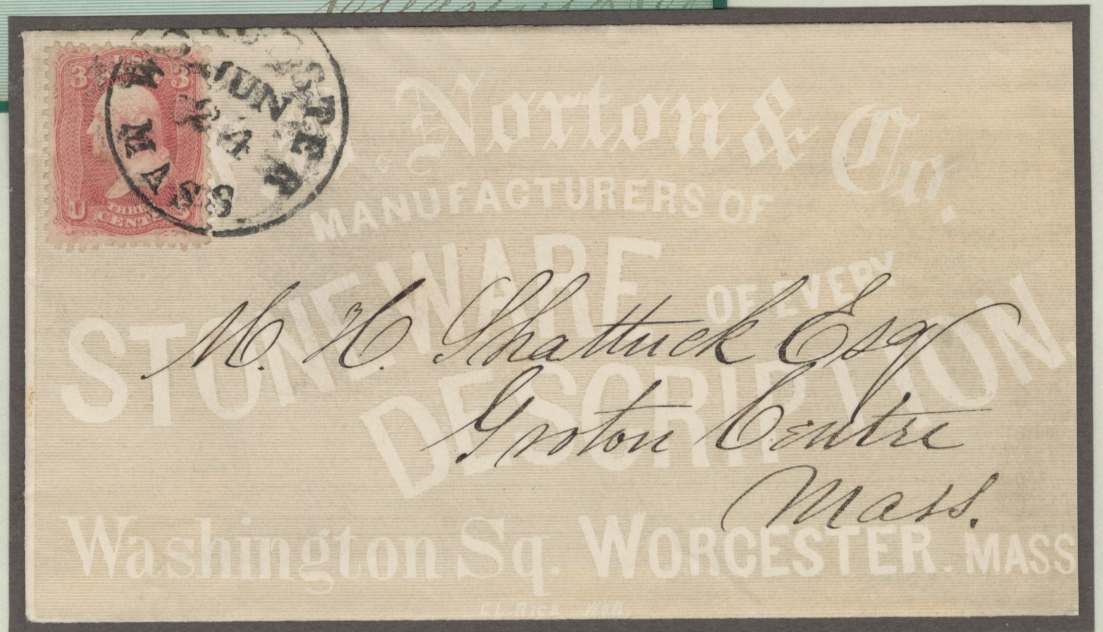 WORCESTER
MASS
JUN
U.S.
3 3
U S
THREE
CENTS
Norton & Co.
MANUFACTURERS OF
STONEWARE OF EVERY
DESCRIPTION.
M. H. Shattuck Esq
Groton Centre
Mass.
Washington Sq. WORCESTER. MASS